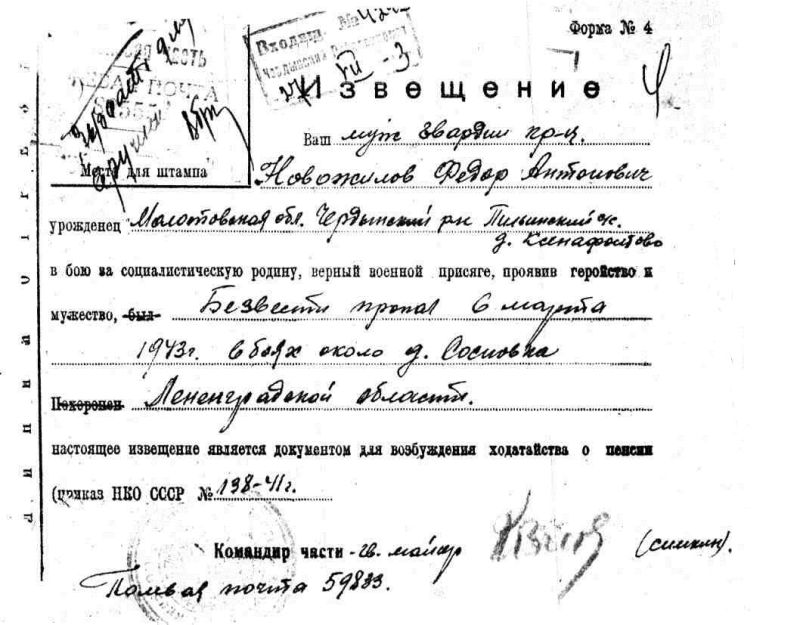 Форма № 4
Входящ. №
VII - 3
ПОЧТА
Место для штампа
Извещение
Ваш муж гвардии кр-ц.
Новожилов Федор Антонович
урожденец Молотовская обл. Чердынский рн
д. Ксенафонтово
в бою за социалистическую родину, верный военной присяге, проявив геройство и
мужество, был Безвести пропал 6 марта
1943г. в боях около д. Сосновка
Похоронен Ленинградской области.
настоящее извещение является документом для возбуждения ходатайства о пенсии
(приказ НКО СССР № 138-41г.
Командир части - гв. майор (симкин).
почта 59833.